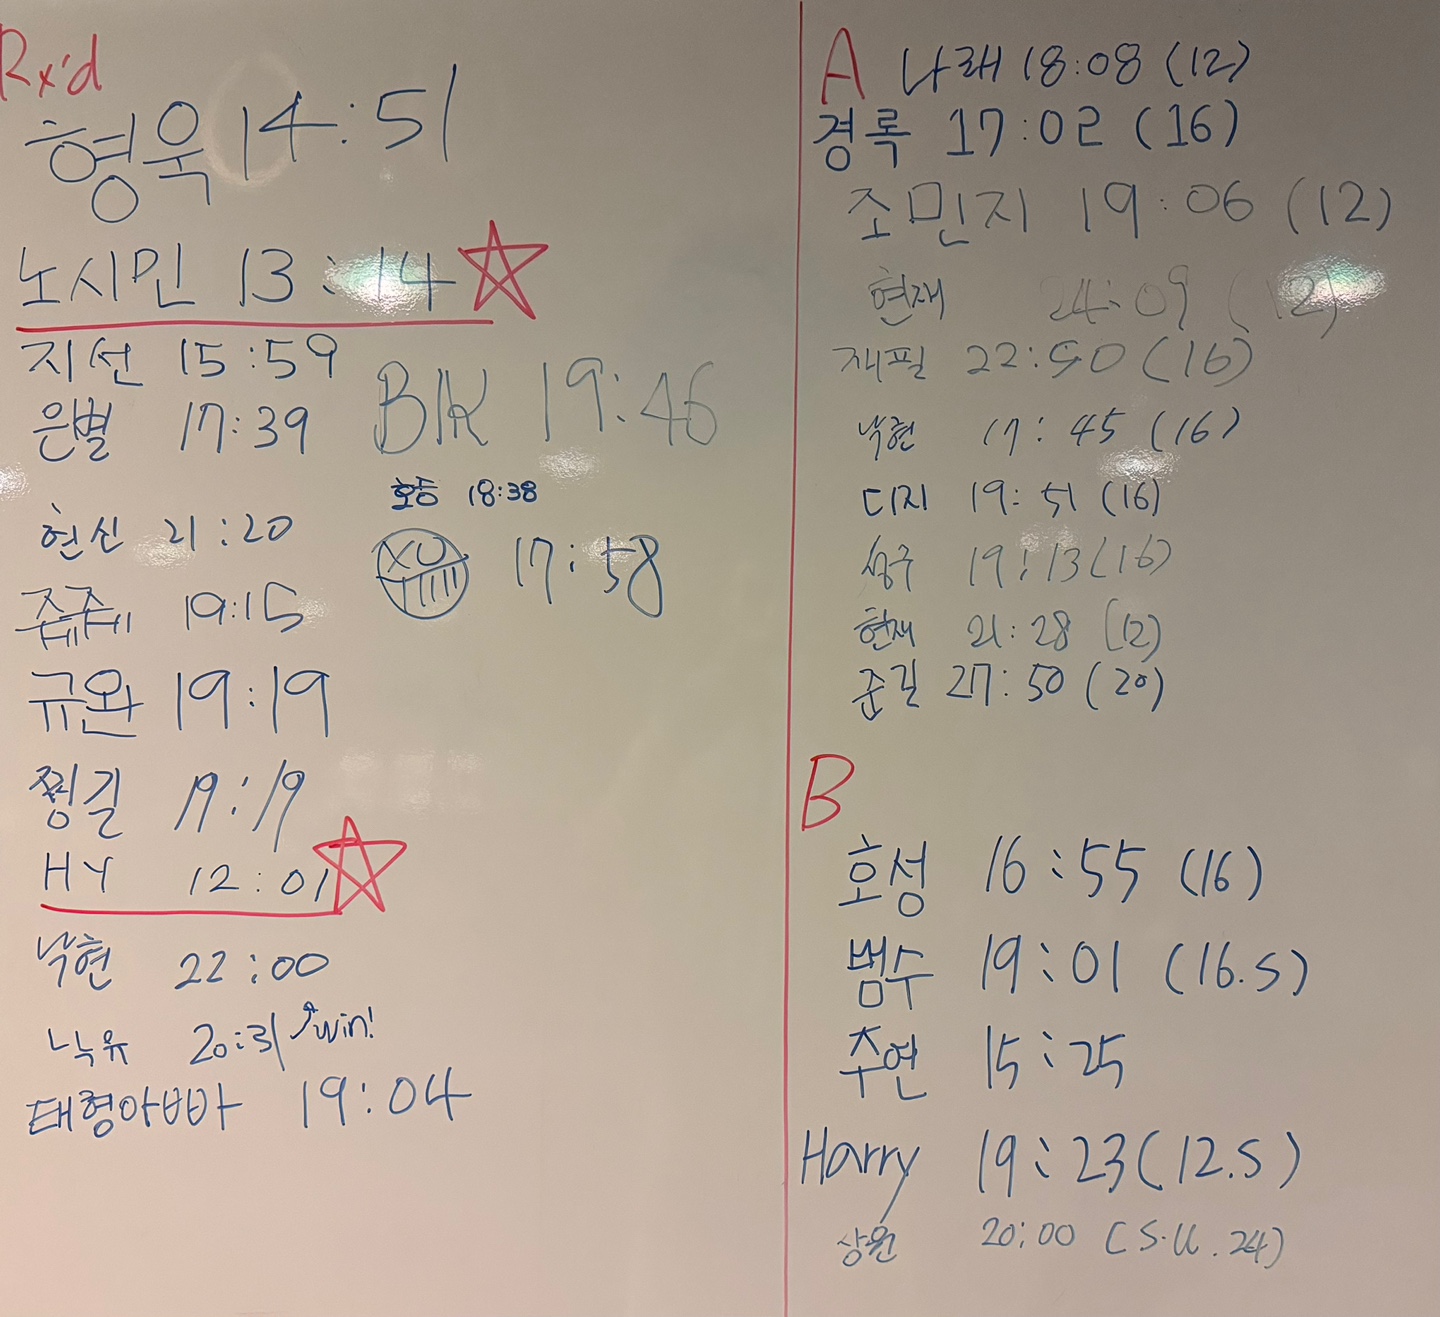 Rx'd
형욱 14:51
노시민 13:14
지선 15:59
은별 17:39
BK 19:46
호둥 18:38
XU 17:58
현신 21:20
쥬쥬 19:15
규완 19:19
찡길 19:19
HY 12:01
낙현 22:00
낙유 20:31 win!
태형아빠 19:04
A 나래 18:08 (12)
경록 17:02 (16)
조민지 19:06 (12)
현재 24:09 (12)
재필 22:50 (16)
낙현 17:45 (16)
디지 19:51 (16)
성구 19:13 (16)
현재 21:28 (12)
준길 27:50 (20)
B
호성 16:55 (16)
범수 19:01 (16.S)
주연 15:25
Harry 19:23 (12.S)
상원 20:00 (S.U.24)